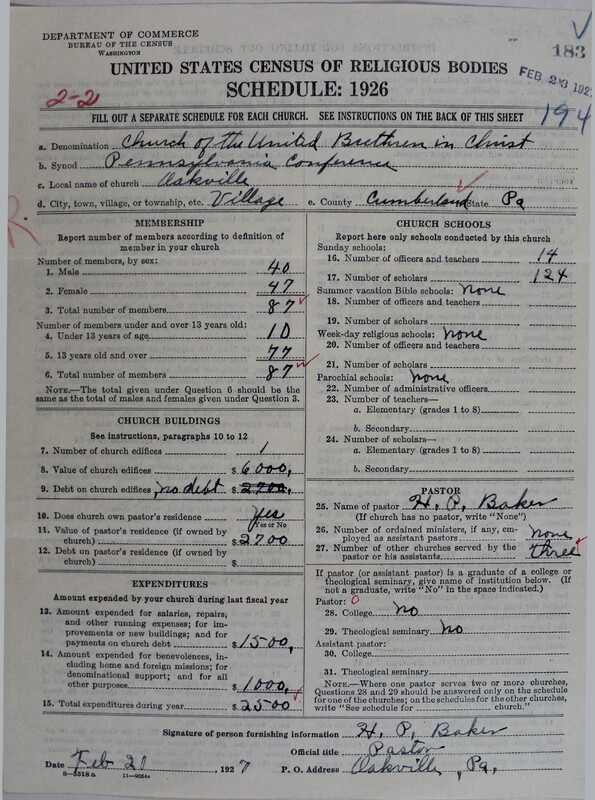 DEPARTMENT OF COMMERCE
BUREAU OF THE CENSUS
WASHINGTON
183
UNITED STATES CENSUS OF RELIGIOUS BODIES
FEB 23 192
SCHEDULE: 1926
2-2
FILL OUT A SEPARATE SCHEDULE FOR EACH CHURCH. SEE INSTRUCTIONS ON THE BACK OF THIS SHEET
194
a. Denomination Church of the United Brethren in Christ
b. Synod Pennsylvania Conference
c. Local name of church Oakville
d. City, town, village, or township, etc. Village e. County Cumberland State Pa
MEMBERSHIP
Report number of members according to definition of
member in your church
Number of members, by sex:
1. Male 40
2. Female 47
3. Total number of members 87
Number of members under and over 13 years old:
4. Under 13 years of age 10
5. 13 years old and over 77
6. Total number of members 87
NOTE.—The total given under Question 6 should be
same as the total of males and females given under Question 3.
CHURCH BUILDINGS
See instructions, paragraphs 10 to 12
7. Number of church edifices 1
8. Value of church edifices $ 6000,
9. Debt on church edifices no debt $ 2700.
10. Does church own pastor's residence yes
Yes or No
11. Value of pastor's residence (if owned by
church) $ 2700
12. Debt on pastor's residence (if owned by
church) $
EXPENDITURES
Amount expended by your church during last fiscal year
13. Amount expended for salaries, repairs,
and other running expenses; for im-
provements or new buildings; and for
payments on church debt $ 1500,
14. Amount expended for benevolences, in-
cluding home and foreign missions; for
denominational support; and for all
other purposes $ 1000,
15. Total expenditures during year $ 2500
CHURCH SCHOOLS
Report here only schools conducted by this church
Sunday schools:
16. Number of officers and teachers 14
17. Number of scholars 124
Summer vacation Bible schools: none
18. Number of officers and teachers
19. Number of scholars
Week-day religious schools: none
20. Number of officers and teachers
21. Number of scholars
Parochial schools: none
22. Number of administrative officers
23. Number of teachers—
a. Elementary (grades 1 to 8)
b. Secondary
24. Number of scholars—
a. Elementary (grades 1 to 8)
b. Secondary
PASTOR
25. Name of pastor H. P. Baker
(If church has no pastor, write "None")
26. Number of ordained ministers, if any, em-
ployed as assistant pastors none
27. Number of other churches served by the
pastor or his assistants three
If pastor (or assistant pastor) is a graduate of a college or
theological seminary, give name of institution below. (If
not a graduate, write "No" in the space indicated.)
Pastor: 0
28. College no
29. Theological seminary no
Assistant pastor:
30. College
31. Theological seminary
NOTE.—Where one pastor serves two or more churches,
Questions 28 and 29 should be answered only on the schedule
for one of the churches; on the schedules for the other churches,
write "See schedule for church."
Signature of person furnishing information H. P. Baker
Official title Pastor
Date Feb 21 1927 P. O. Address Oakville, Pa,
8—5518a 11—9054a